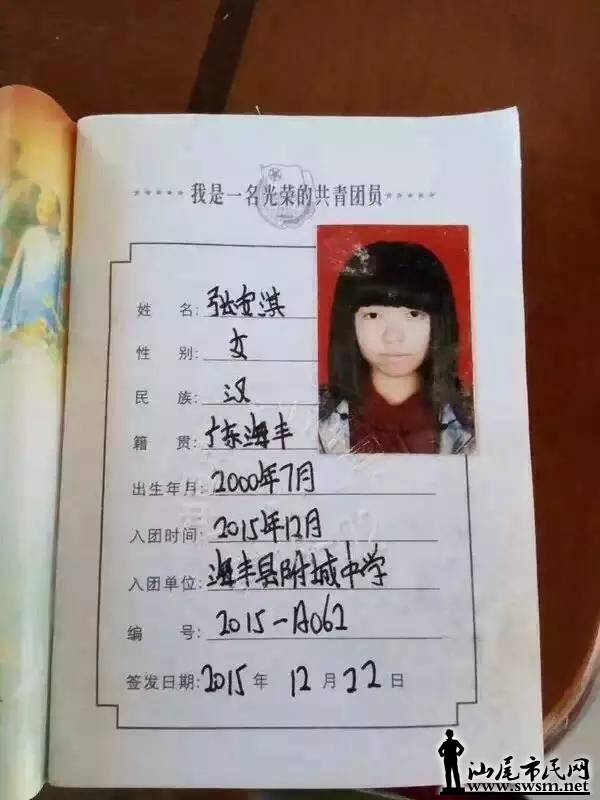 ★★★★★ 我是一名光荣的共青团员 ★★★★★
姓 名: 张宝淇
性 别: 女
民 族: 汉
籍 贯: 广东海丰
出生年月: 2000年7月
入团时间: 2015年12月
入团单位: 海丰县附城中学
编 号: 2015-A062
签发日期: 2015 年 12 月 22 日
汕尾市民网
www.swsm.net